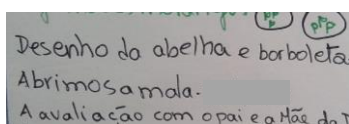 Desenho da abelha e borboleta
Abrimos a mala.
A avaliação com o pai e a Mãe da